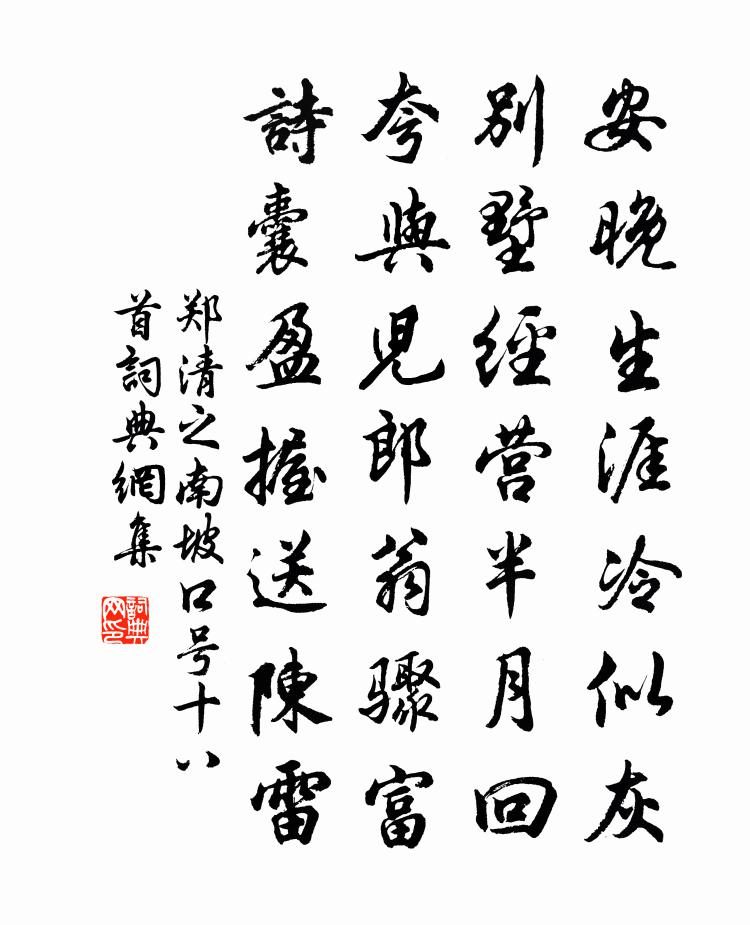 安晚生涯冷似灰
別墅經营半月回
夸與児郎翁驟富
詩囊盈握送陳雷
郑清之南坡口号十八
首詞典網集
詞典
网印